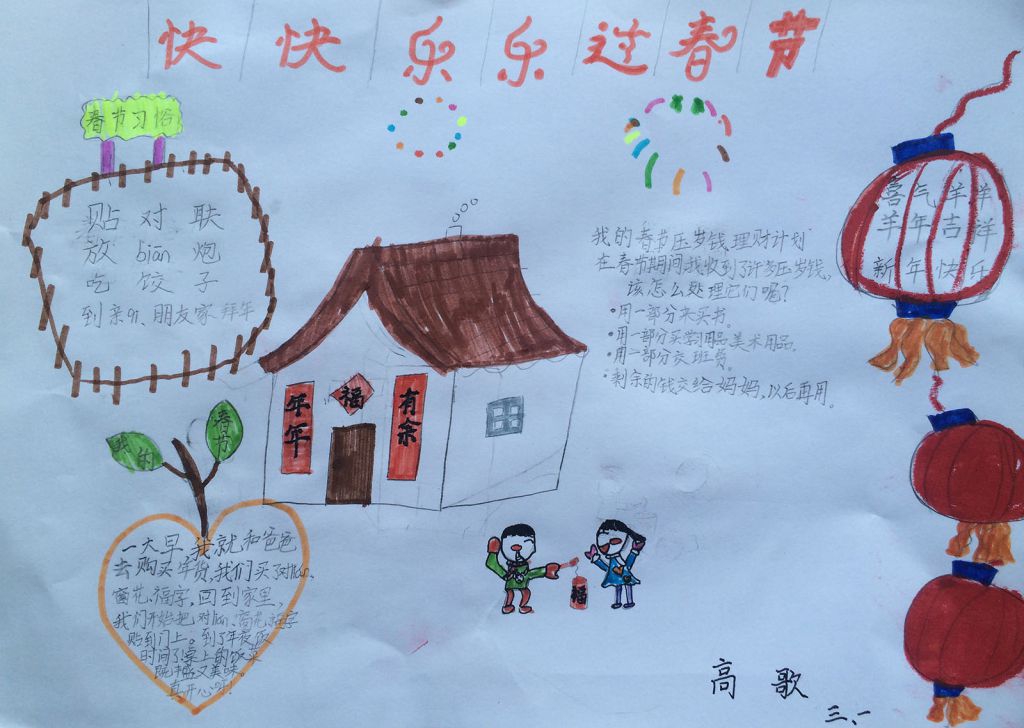 快快乐乐过春节
春节习俗
贴对联
放bian炮
吃饺子
到亲qi、朋友家拜年
我的春节压岁钱理财计划
在春节期间我收到了许多压岁钱,
该怎么处理它们呢?
•用一部分来买书。
•用一部分买学习用品美术用品。
•用一部分交班费。
•剩余的钱交给妈妈,以后再用。
喜气羊羊
羊年吉祥
新年快乐
年年
福
有余
我的
春节
一大早,我就和爸爸
去购买年货,我们买了对lian、
窗花、福字,回到家里,
我们开始把对lian、窗花、福字
贴到门上。到了年夜饭
时间了桌上的饭菜
既丰盛又美味。
真开心呀!
福
高歌
三、一